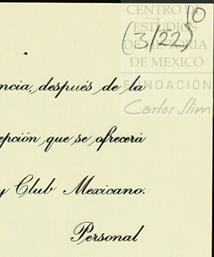 CENTRO DE
ESTUDIOS
DE HISTORIA
DE MEXICO
FUNDACIÓN
Carlos Slim
(3/22)
ncia, después de la
epción que se ofrecerá
y Club Mexicano.
Personal